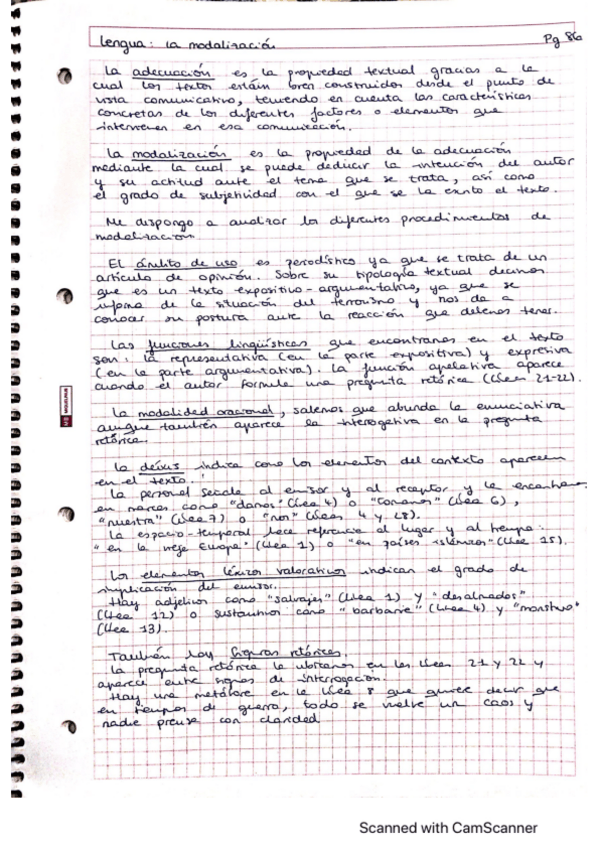 Lengua: La modalización Pg 86
La adecuación es la propiedad textual gracias a la
cual los textos están bien construidos desde el punto de
vista comunicativo, teniendo en cuenta las características
concretas de los diferentes factores o elementos que
intervienen en esa comunicación.
La modalización es la propiedad de la adecuación
mediante la cual se puede deducir la intención del autor
y su actitud ante el tema que se trata, así como
el grado de subjetividad con el que se ha escrito el texto.
Me dispongo a analizar los diferentes procedimientos de
modalización.
El ámbito de uso es periodístico ya que se trata de un
artículo de opinión. Sobre su tipología textual decimos
que es un texto expositivo-argumentativo, ya que se
informa de la situación del terrorismo y nos da a
conocer su postura ante la reacción que debemos tener.
Las funciones lingüísticas que encontramos en el texto
son: la representativa (en la parte expositiva) y expresiva
(en la parte argumentativa). La función apelativa aparece
cuando el autor formula una pregunta retórica (línea 21-22).
La modalidad oracional, sabemos que abunda la enunciativa
aunque también aparece la interrogativa en la pregunta
retórica.
La deixis indica como los elementos del contexto aparecen
en el texto.
La personal señala al emisor y al receptor y la encontramos
en marcas como "damos" (línea 4) o (línea 6),
"nuestra" (línea 7) o "nos" (líneas 4 y 28).
La espacio-temporal hace referencia al lugar y al tiempo:
"en la vieja Europa" (línea 1) o "en países islámicos" (línea 15).
Los elementos léxicos valorativos indican el grado de
implicación del emisor.
Hay adjetivos como "salvajes" (línea 1) y "desalmados"
(línea 12) o sustantivos como "barbarie" (línea 4) y "monstruo"
(línea 13).
También hay figuras retóricas.
La pregunta retórica la ubicamos en las líneas 21 y 22 y
aparece entre signos de interrogación.
Hay una metáfora en la línea 8 que quiere decir que
en tiempos de guerra, todo se vuelve un caos y
nadie piensa con claridad
Scanned with CamScanner